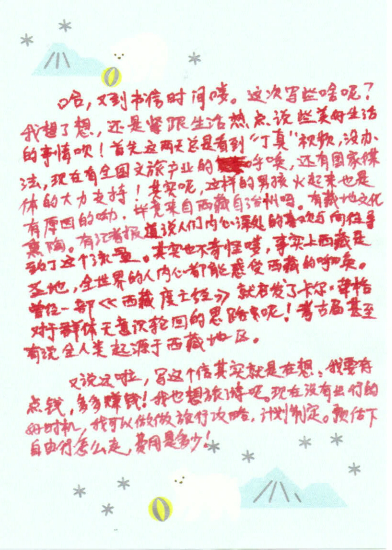 哈，又到书信时间喽。这次写些啥呢？
我想了想，还是紧跟生活热点，说些美好生活
的事情吹！首先这两天总是看到“丁真”视频，没办
法，现在有全国文旅产业的呼唤，还有国家媒
体的大力支持！其实呢，这样的男孩火起来也是
有原因的呦，毕竟来自西藏自治州吗。有藏地文化
熏陶。有记者报道说人们内心深处的喜欢与向往寻
到了这个決。其实也不奇怪喽，事实上西藏是
圣地，全世界的人内心都能感受西藏的呼唤。
曾经一部《西藏度亡经》就启发了卡尔·荣格
对于群体无意识轮回的思路呢！考古届甚至
有说全人类起源于西藏地区。
又说远啦，写这个信其实就是在想，我要存
点钱，多多赚钱！我也想旅游呢，现在没有出行的
好时机，我可以做做旅行攻略，计划制定。预估下
自由行怎么走，费用是多少！